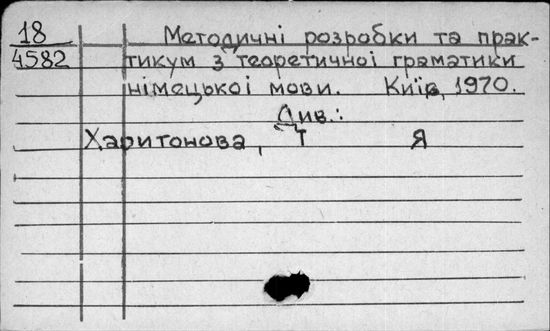 18
4582
Методичні розробки та прак-
тикум з теоретичної граматики
німецької мови. Київ, 1970.
Див.:
Харитонова, Т Я